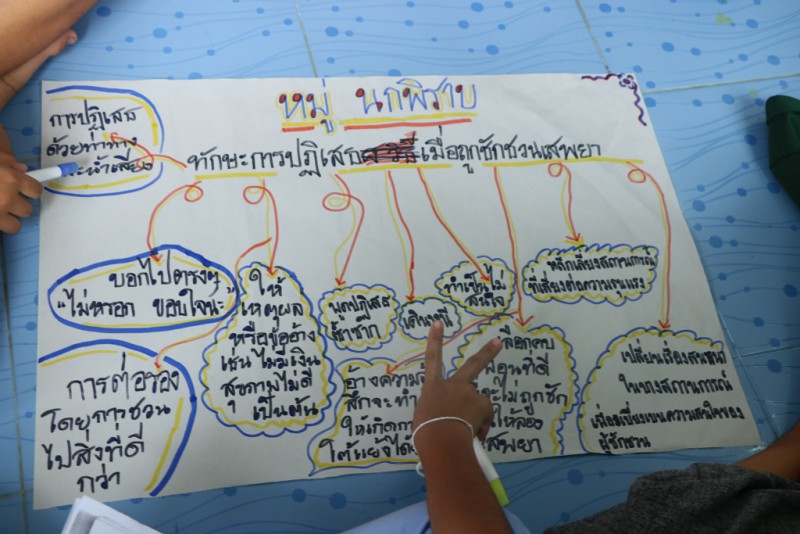 หมู่ นกพิราบ
ทักษะการปฏิเสธเมื่อถูกชักชวนเสพยา
การปฏิเสธ
ด้วยท่าทาง
น้ำเสียง
บอกไปตรงๆ
"ไม่หรอก ขอบใจนะ"
ให้
เหตุผล
หรือข้ออ้าง
เช่น ไม่มีเงิน
สุขภาพไม่ดี
เป็นต้น
พูดปฏิเสธ
ซ้ำซาก
เดินหนี
ทำเป็นไม่
สนใจ
หลีกเลี่ยงสถานการณ์
ที่เสี่ยงต่อความรุนแรง
การต่อรอง
โดยการชวน
ไปสิ่งที่ดี
กว่า
อ้างความ
สึกจะทำ
ให้เกิด
โต้แย้งได้
ที่ดี
ไม่ถูกชัก
ให้ลอง
เสพยา
เปลี่ยนเรื่องสนทนา
ในบางสถานการณ์
เพื่อเบี่ยงเบนความสนใจของ
ผู้ชักชวน